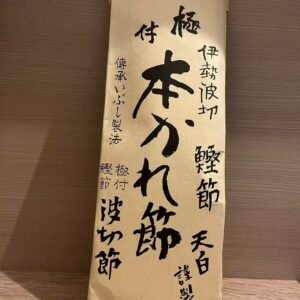 極付
伊勢波切
鰹節
天白
謹製
本かれ節
傳承いぶし製法
極付
鰹節
波切節